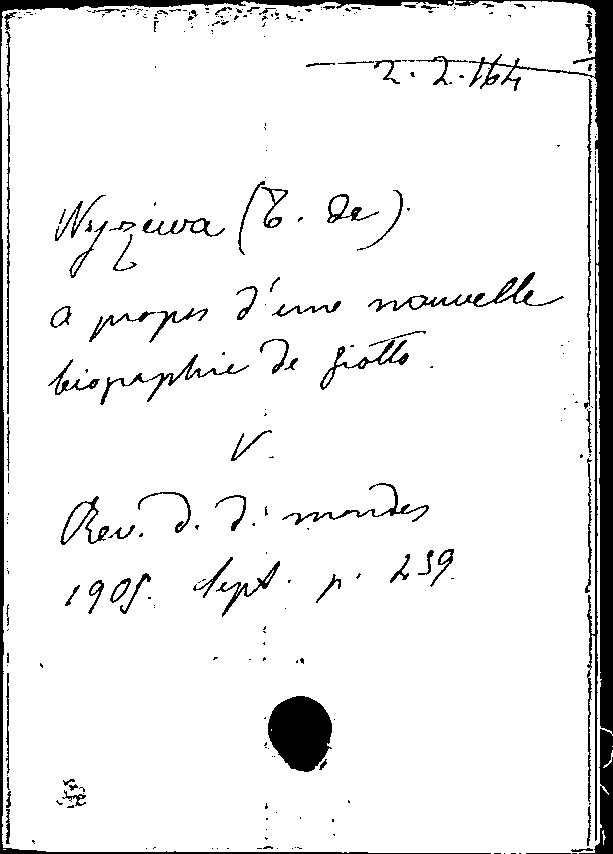 2.2.164
Wyzewa (T. de).
a propos d'une nouvelle
biographie de Giotto.
V
Rev. d. d. mondes
1905. Sept. p. 239